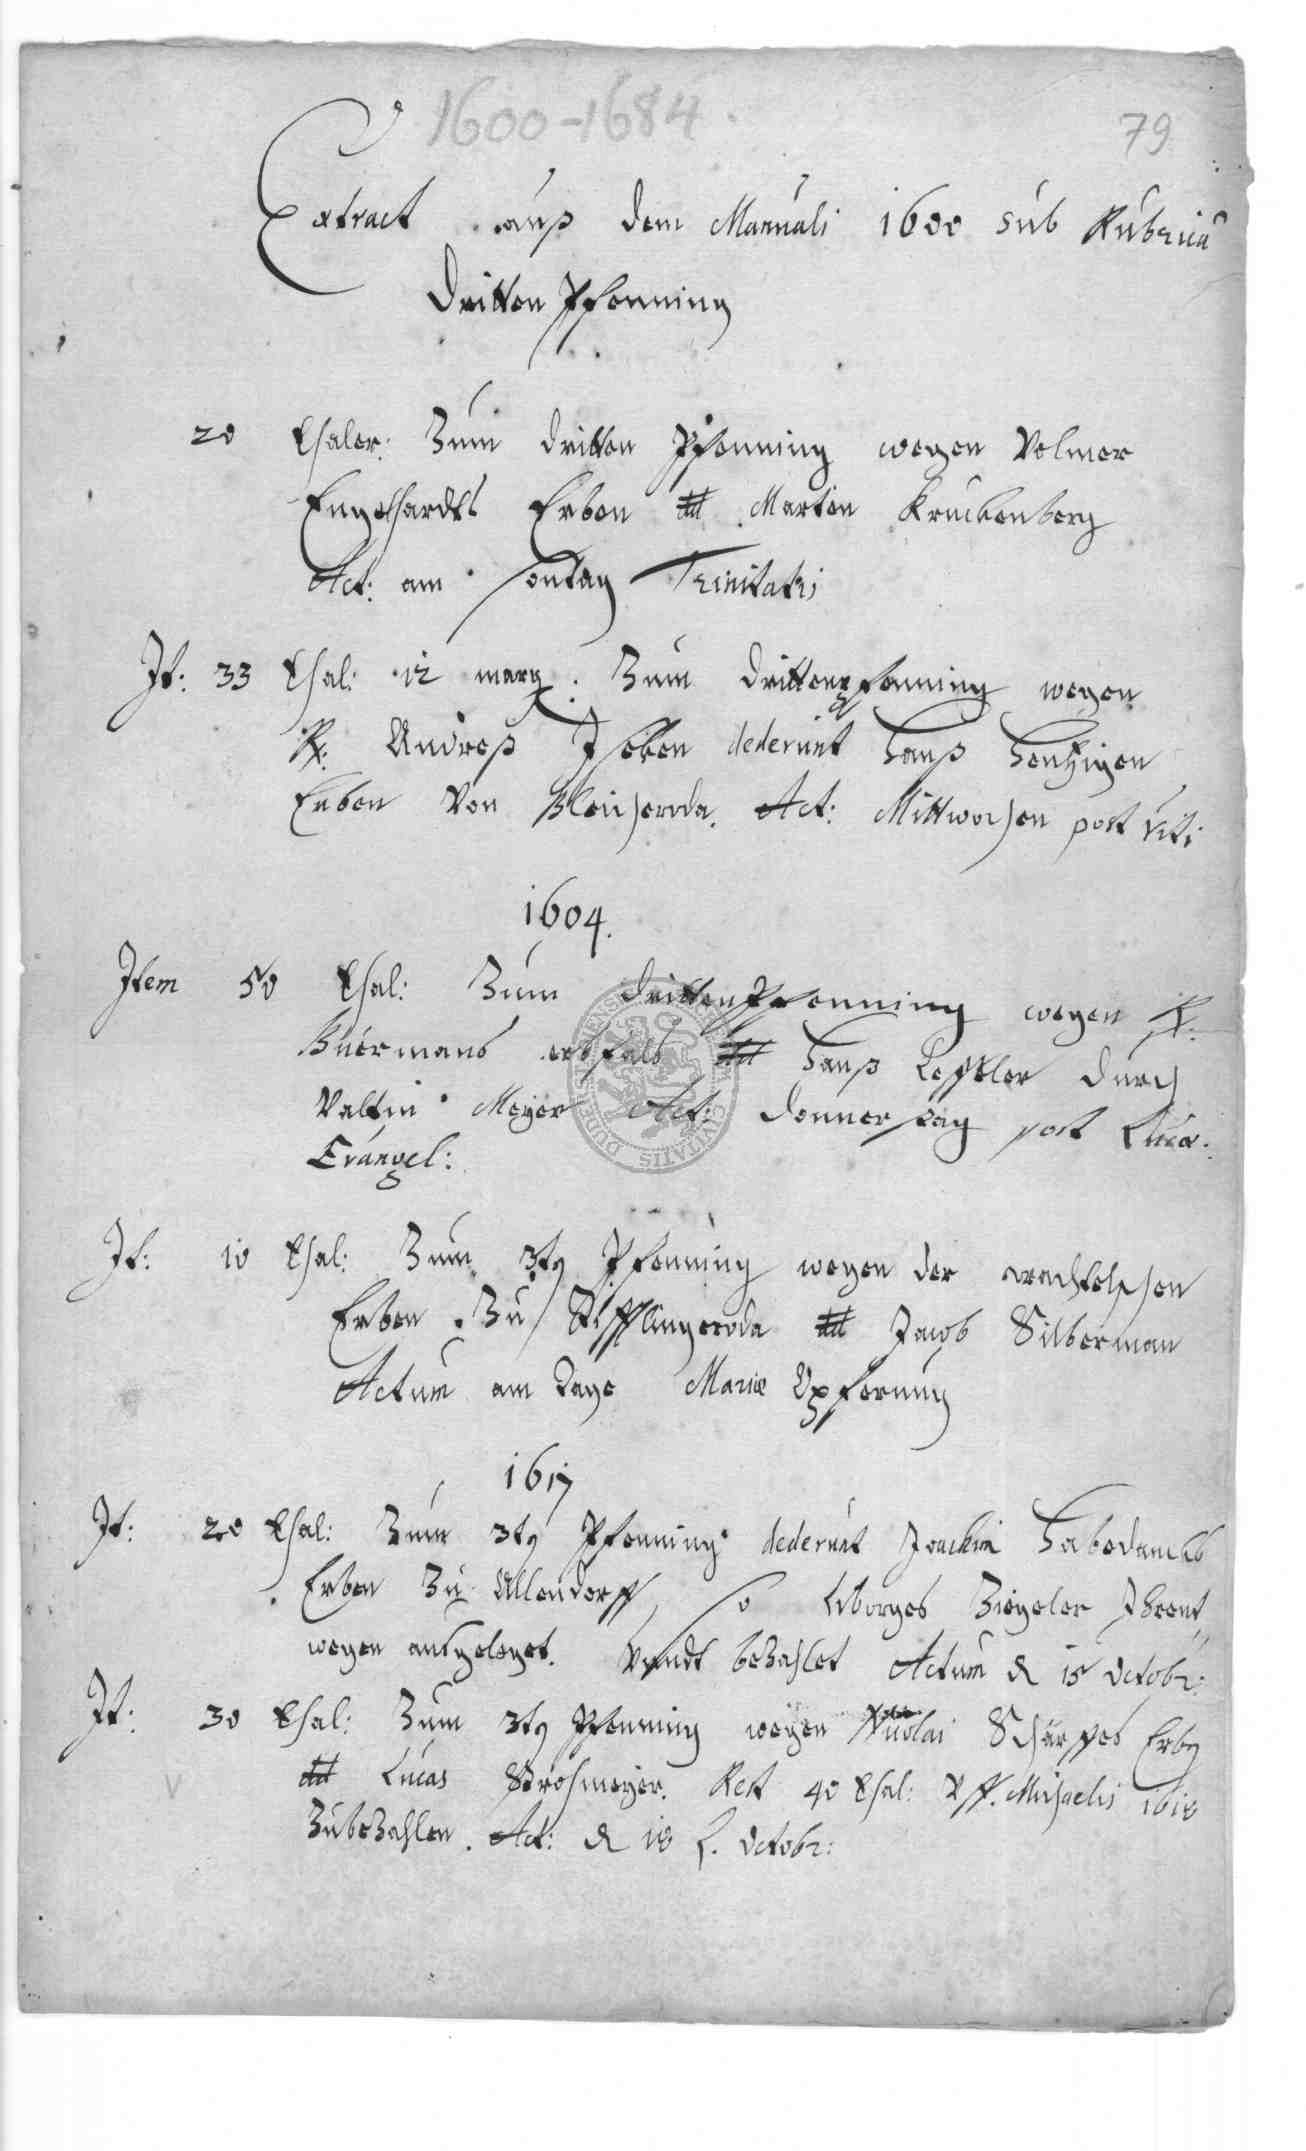 1600-1684.
79
Extract auß dem Manuali 1600 sub Rubrica
Dritten Pfenning
20 thaler: Zum dritten Pfenning wegen Volmer
Engelhardts Erben dd Marten Kruckenberg
Act: am Sontag Trinitatis
It: 33 thal: 12 marg: Zum drittenpfenning wegen
Andreß Iseken dederunt Hanß Hentzigen
Erben Von Bleicheroda. Act: Mittwochen post Viti
1604.
Item 50 thal: Zum drittenPfenning wegen
Buermans erbfalls dd Hanß Leffeler durch
Valtin Meyer Act: Donnerstag post Lucæ
Evangel:
It: 10 thal: Zum 3tn Pfenning wegen der
Erben Zu Tifflingeroda dd Jacob Silberman
Actum am Tage Mariæ Opfferung
1617
It: 20 thal: Zum 3tn Pfenning dederunt Joachim
Erben Zu Allendorff, so Ziegeler Ihrent„
wegen außgeleget. Vnndt beZahlet Actum d 15 Octobr:
It: 30 thal: Zum 3tn Pfenning wegen Nicolai Scharffes Erbn
dd Lucas Strohmeyer. Rest 40 thal: Vff. Michaelis 1618
ZubeZahlen. Act: d 18 Octobr:
V